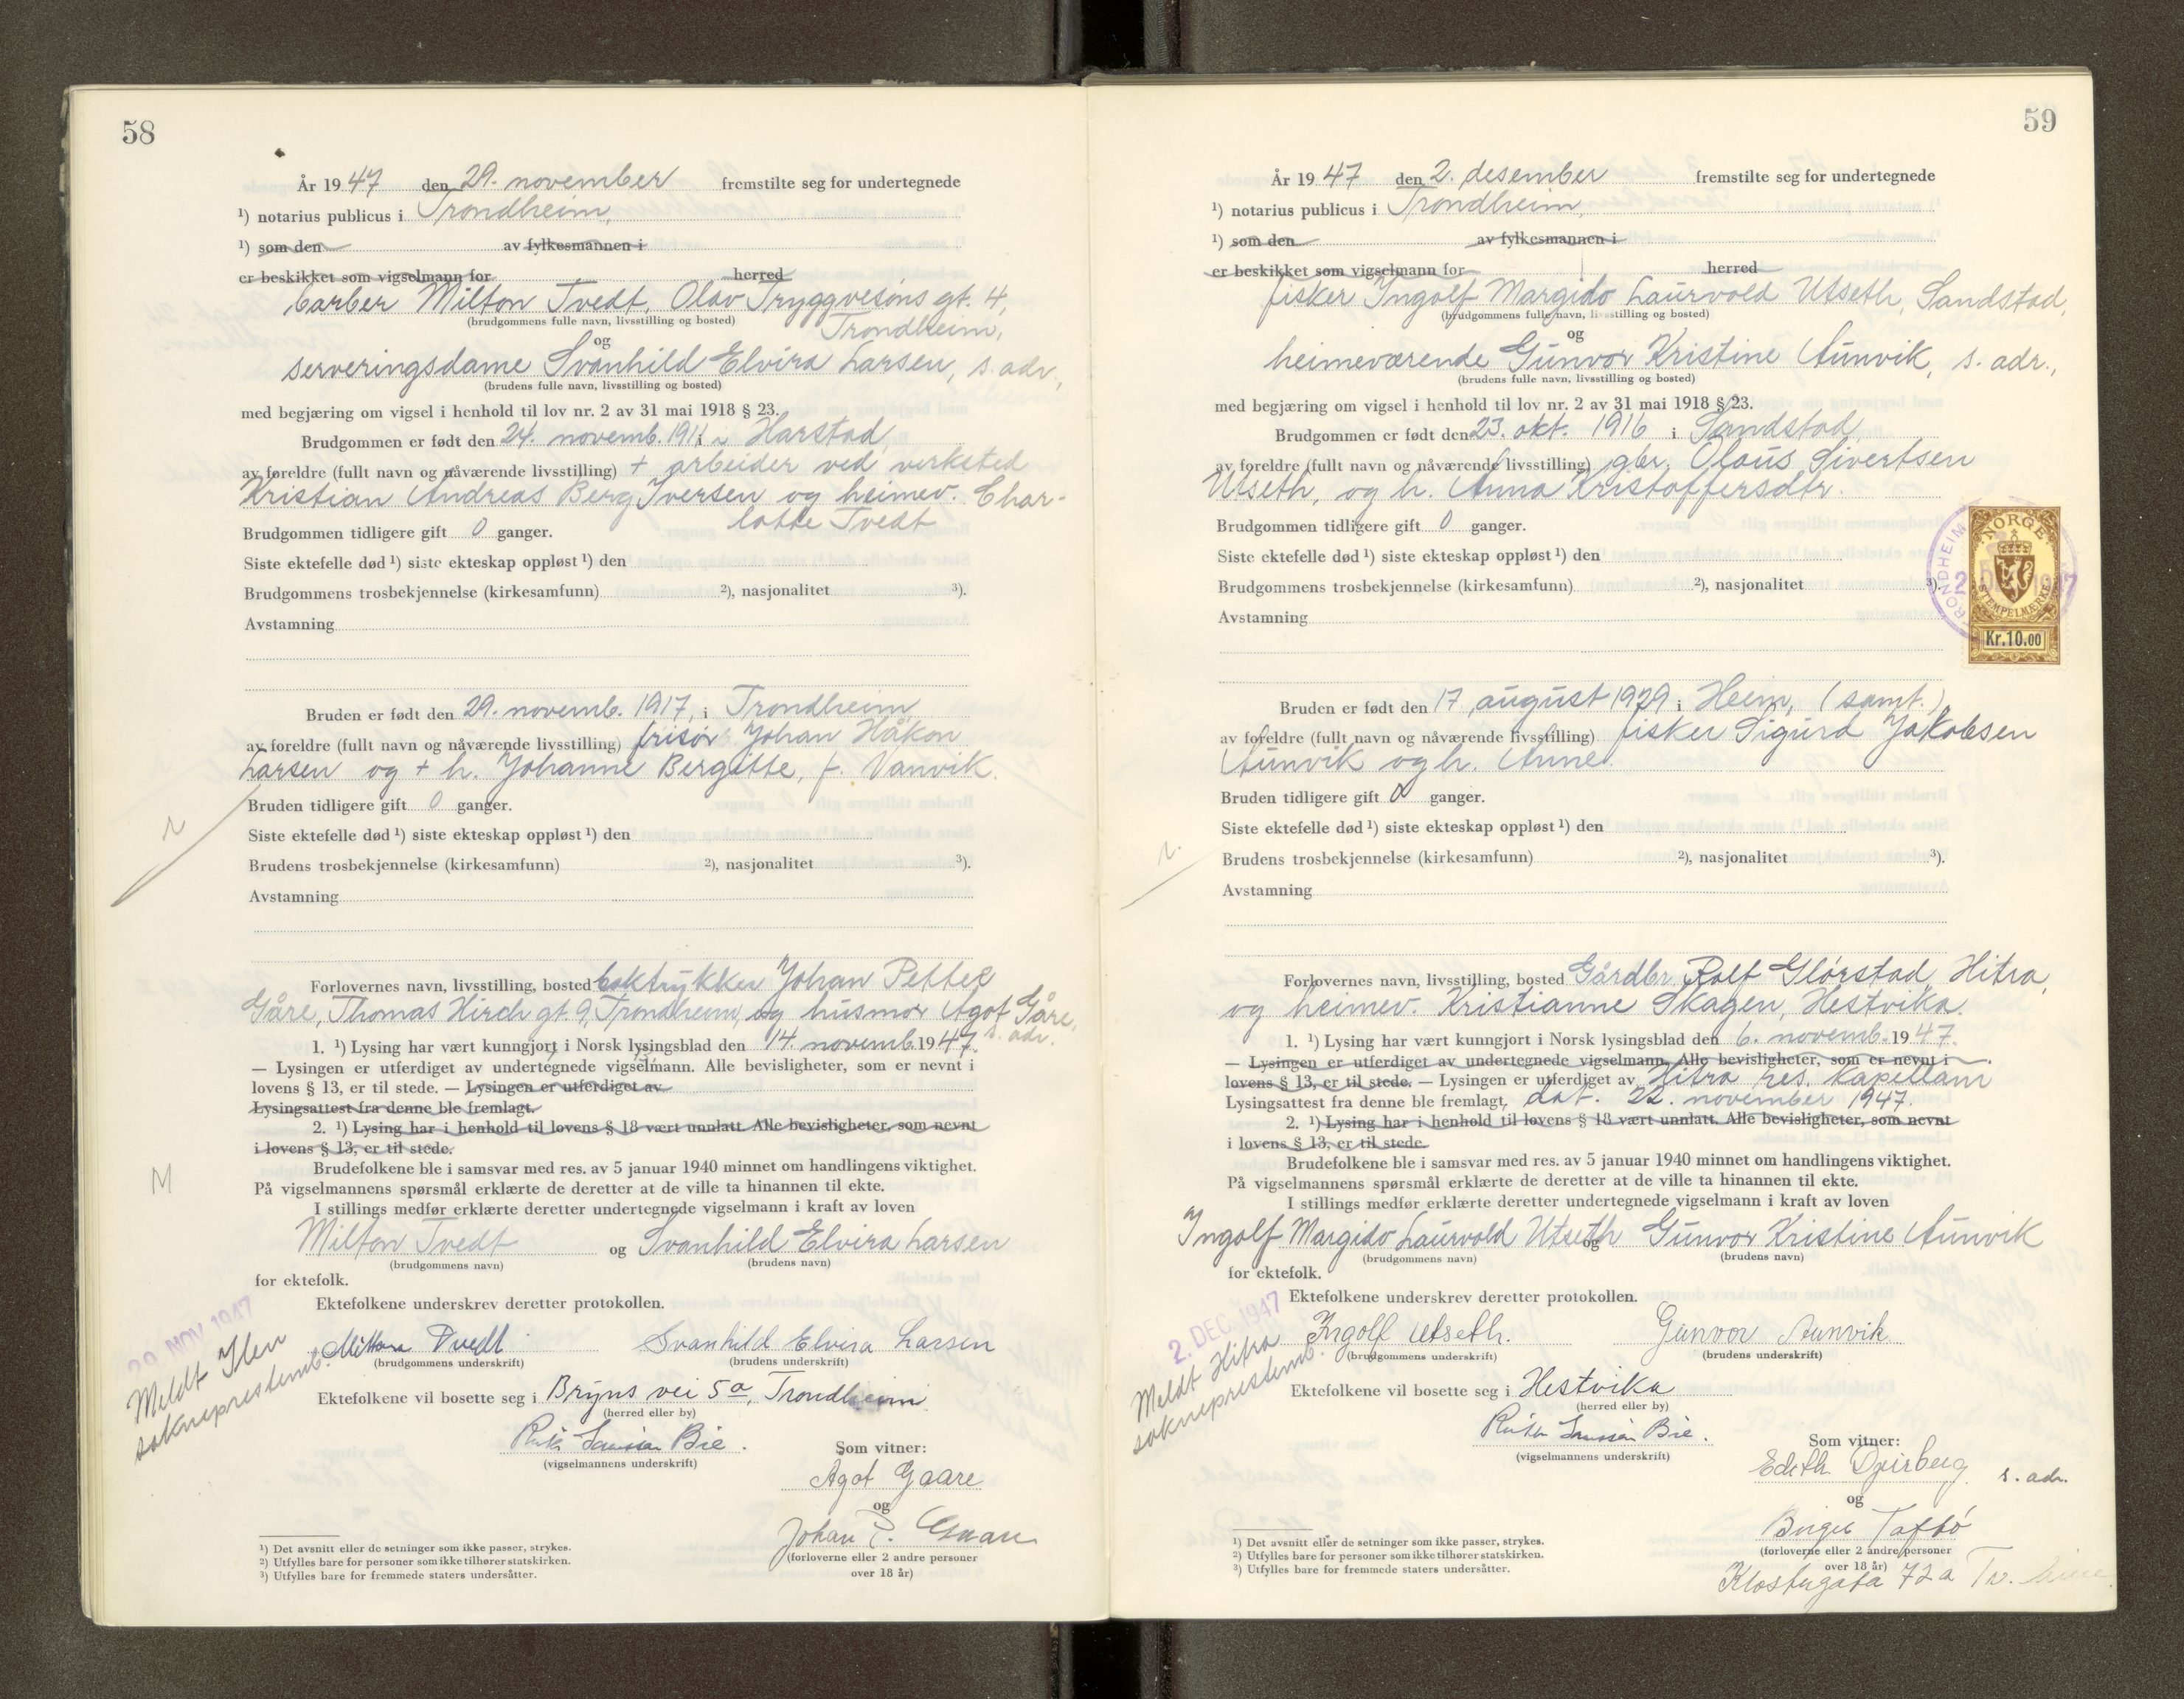 58
År 1947 den 29. november fremstilte seg for undertegnede
¹) notarius publicus i Trondheim,
¹) som den av fylkesmannen i
er beskikket som vigselmann for herred
barber Milton Tvedt, Olav Tryggvesøns gt. 4,
(brudgommens fulle navn, livsstilling og bosted)
Trondheim,
og
serveringsdame Svanhild Elvira Larsen, s. adr.,
(brudens fulle navn, livsstilling og bosted)
med begjæring om vigsel i henhold til lov nr. 2 av 31 mai 1918 § 23.
Brudgommen er født den 24. novemb. 1911 i Harstad,
av foreldre (fullt navn og nåværende livsstilling) + arbeider ved verksted
Kristian Andreas Berg Iversen og heimev. Char-
lotte Tvedt
Brudgommen tidligere gift 0 ganger.
Siste ektefelle død ¹) siste ekteskap oppløst ¹) den
Brudgommens trosbekjennelse (kirkesamfunn) ²), nasjonalitet ³).
Avstamning
Bruden er født den 29. novemb. 1917, i Trondheim
av foreldre (fullt navn og nåværende livsstilling) frisør Johan Håkon
Larsen og + h. Johanne Bergitte, f. Vanvik.
Bruden tidligere gift 0 ganger.
Siste ektefelle død ¹) siste ekteskap oppløst ¹) den
Brudens trosbekjennelse (kirkesamfunn) ²), nasjonalitet ³).
Avstamning
Forlovernes navn, livsstilling, bosted boktrykker Johan Petter
Gåre, Thomas Hirch gt. 9, Trondheim, og husmor Agot Gåre,
s. adr.
1. ¹) Lysing har vært kunngjort i Norsk lysingsblad den 14. novemb. 1947.
— Lysingen er utferdiget av undertegnede vigselmann. Alle bevisligheter, som er nevnt i
lovens § 13, er til stede. — Lysingen er utferdiget av
Lysingsattest fra denne ble fremlagt.
2. ¹) Lysing har i henhold til lovens § 18 vært unnlatt. Alle bevisligheter, som nevnt
i lovens § 13, er til stede.
M
Brudefolkene ble i samsvar med res. av 5 januar 1940 minnet om handlingens viktighet.
På vigselmannens spørsmål erklærte de deretter at de ville ta hinannen til ekte.
I stillings medfør erklærte deretter undertegnede vigselmann i kraft av loven
Milton Tvedt og Svanhild Elvira Larsen
(brudgommens navn) (brudens navn)
for ektefolk.
Ektefolkene underskrev deretter protokollen.
29 NOV 1947
Meldt Ilen
sokneprestemb.
Milton Tvedt Svanhild Elvira Larsen
(brudgommens underskrift) (brudens underskrift)
Ektefolkene vil bosette seg i Bryns vei 5a, Trondheim
(herred eller by)
Bie.
(vigselmannens underskrift)
Som vitner:
Agot Gaare
og
Johan P. Gaare
(forloverne eller 2 andre personer
over 18 år)
¹) Det avsnitt eller de setninger som ikke passer, strykes.
²) Utfylles bare for personer som ikke tilhører statskirken.
³) Utfylles bare for fremmede staters undersåtter.
59
År 1947 den 2. desember fremstilte seg for undertegnede
¹) notarius publicus i Trondheim,
¹) som den av fylkesmannen i
er beskikket som vigselmann for herred
fisker Ingolf Margido Laurvold Utseth, Sandstad,
(brudgommens fulle navn, livsstilling og bosted)
og
heimeværende Gunvor Kristine Aunvik, s. adr.,
(brudens fulle navn, livsstilling og bosted)
med begjæring om vigsel i henhold til lov nr. 2 av 31 mai 1918 § 23.
Brudgommen er født den 23. okt. 1916 i Sandstad,
av foreldre (fullt navn og nåværende livsstilling) gbr. Olaus Sivertsen
Utseth, og h. Anna Kristoffersdtr.
Brudgommen tidligere gift 0 ganger.
Siste ektefelle død ¹) siste ekteskap oppløst ¹) den
Brudgommens trosbekjennelse (kirkesamfunn) ²), nasjonalitet ³).
Avstamning
TRONDHEIM
NORGE
2 1947
STEMPELMERKE
Kr.10.00
Bruden er født den 17. august 1929 i Heim, (samt.)
av foreldre (fullt navn og nåværende livsstilling) fisker Sigurd Jakobsen
Aunvik og h. Anne.
Bruden tidligere gift 0 ganger.
Siste ektefelle død ¹) siste ekteskap oppløst ¹) den
Brudens trosbekjennelse (kirkesamfunn) ²), nasjonalitet ³).
Avstamning
Forlovernes navn, livsstilling, bosted Gårdbr. Rolf Glørstad, Hitra,
og heimev. Kristianne Skagen, Hestvika.
1. ¹) Lysing har vært kunngjort i Norsk lysingsblad den 6. novemb. 1947.
— Lysingen er utferdiget av undertegnede vigselmann. Alle bevisligheter, som er nevnt i
lovens § 13, er til stede. — Lysingen er utferdiget av Hitra res. kapellani
Lysingsattest fra denne ble fremlagt, dat. 22. november 1947.
2. ¹) Lysing har i henhold til lovens § 18 vært unnlatt. Alle bevisligheter, som nevnt
i lovens § 13, er til stede.
Brudefolkene ble i samsvar med res. av 5 januar 1940 minnet om handlingens viktighet.
På vigselmannens spørsmål erklærte de deretter at de ville ta hinannen til ekte.
I stillings medfør erklærte deretter undertegnede vigselmann i kraft av loven
Ingolf Margido Laurvold Utseth og Gunvor Kristine Aunvik
(brudgommens navn) (brudens navn)
for ektefolk.
Ektefolkene underskrev deretter protokollen.
2. DEC. 1947
Meldt Hitra
sokneprestemb.
Ingolf Utseth. Gunvor Aunvik
(brudgommens underskrift) (brudens underskrift)
Ektefolkene vil bosette seg i Hestvika
(herred eller by)
Bie.
(vigselmannens underskrift)
Som vitner:
Edith s. adr.
og
Taftø
(forloverne eller 2 andre personer
over 18 år)
Klostergata 72a
¹) Det avsnitt eller de setninger som ikke passer, strykes.
²) Utfylles bare for personer som ikke tilhører statskirken.
³) Utfylles bare for fremmede staters undersåtter.